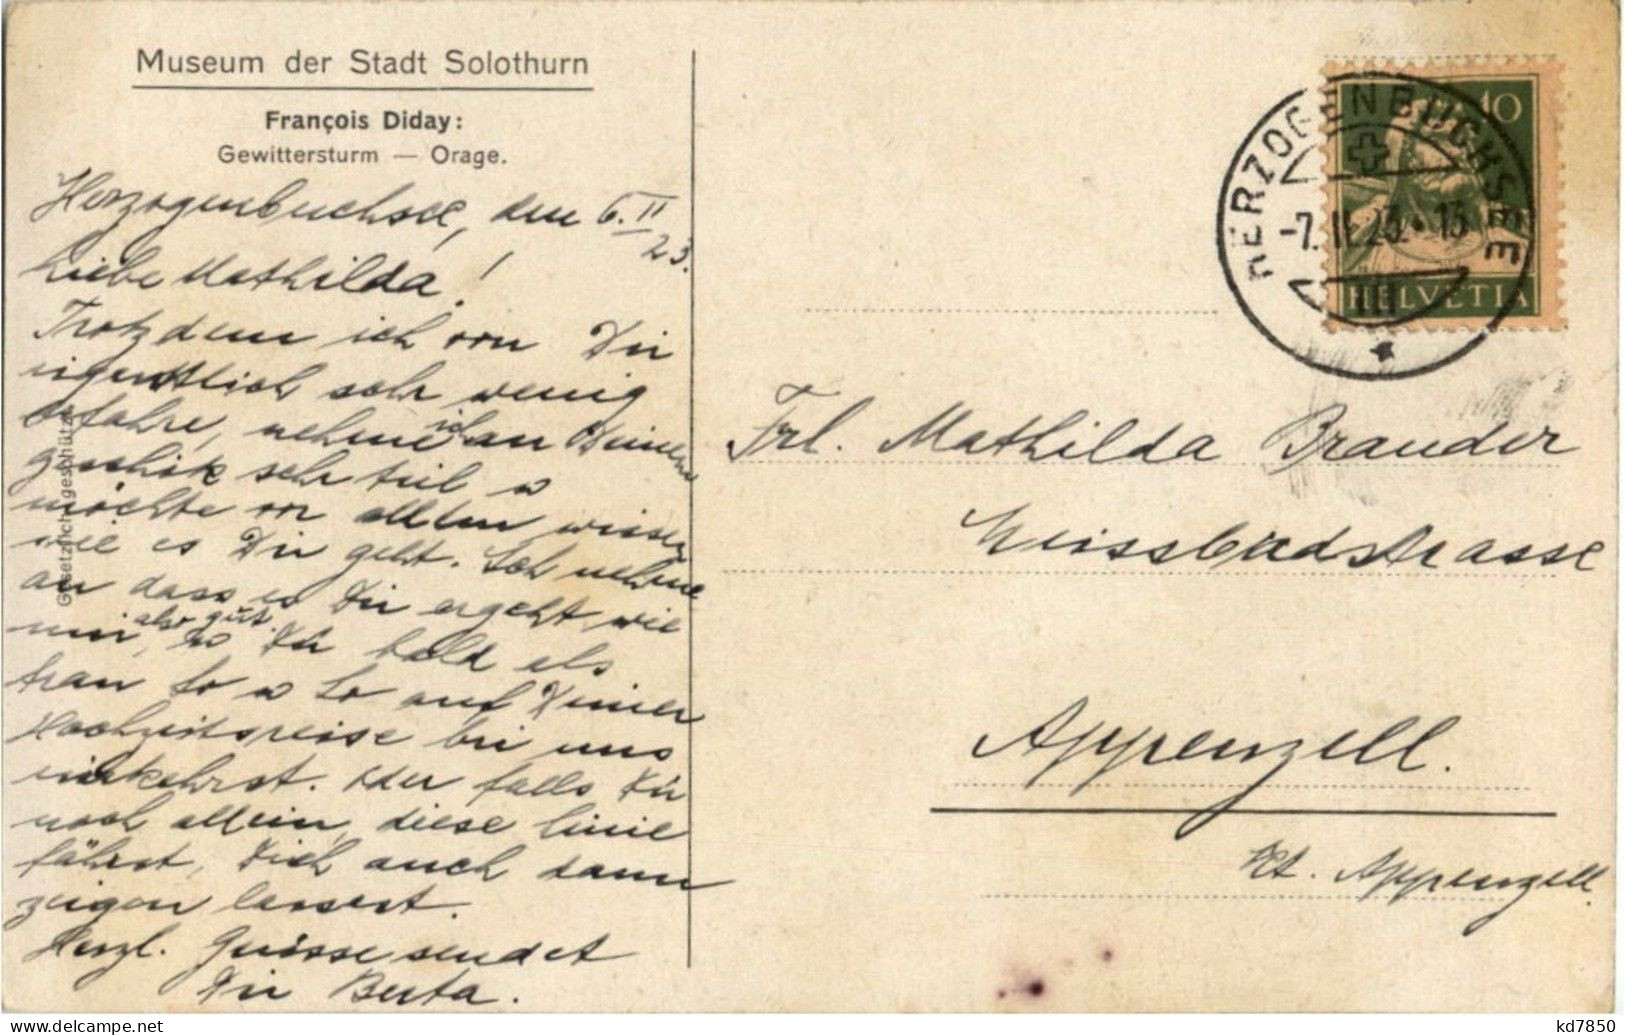 Museum der Stadt Solothurn
François Diday:
Gewittersturm — Orage.
Herzogenbuchsee, den 6. II
23.
Liebe Mathilda!
Trotzdem ich von Dir
eigentlich sehr wenig
erfahre, nehme ich an Deinem
geschik sehr teil u
möchte vor allem wissen
wie es Dir geht. Ich nehme
an dass es Dir ergeht, wie
mir, also gut. Du bald als
frau So u So auf Deiner
Hochzeitsreise bei uns
einkehrst. Oder falls Du
noch allein, diese linie
fährst, Dich auch dann
zeigen lassest.
Herzl. Grüsse sendet
Dir Berta.
Gesetzlich geschützt
HERZOGENBUCHSEE
-7. II 23. 13
III
10
HELVETIA
Frl. Mathilda Brander
Weissbadstrasse
Appenzell.
Kt. Appenzell.
delcampe.net
kd7850